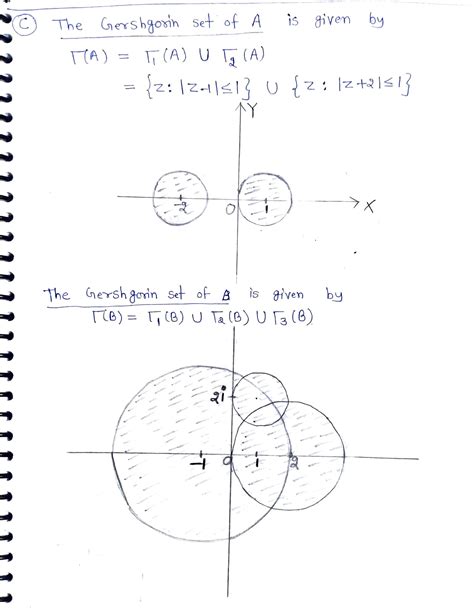 C The Gershgorin set of A is given by
Γ(A) = Γ₁(A) ∪ Γ₂(A)
= {z: |z-1|≤1} ∪ {z : |z+2|≤1}
Y
-2 0 1 X
The Gershgorin set of B is given by
Γ(B) = Γ₁(B) ∪ Γ₂(B) ∪ Γ₃(B)
2i
-1 0 1 2